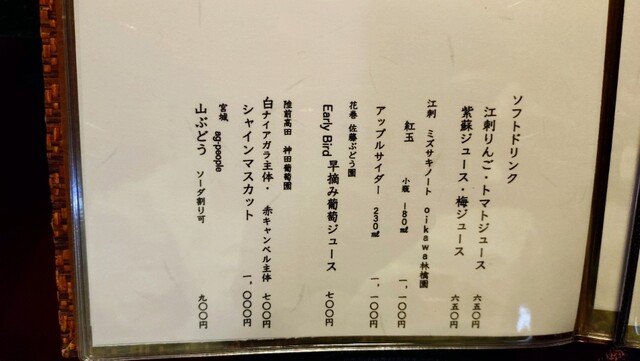 ソフトドリンク
江刺りんご・トマトジュース 六五〇円
紫蘇ジュース・梅ジュース 六五〇円
江刺 ミズサキノート oikawa林檎園
紅玉 小瓶 180㎖ 一,一〇〇円
アップルサイダー 230㎖ 一,一〇〇円
花巻 佐藤ぶどう園
Early Bird 早摘み葡萄ジュース 七〇〇円
陸前高田 神田葡萄園
白ナイアガラ主体・赤キャンベル主体 七〇〇円
シャインマスカット 一,〇〇〇円
宮城 ag-people
山ぶどう ソーダ割り可 九〇〇円